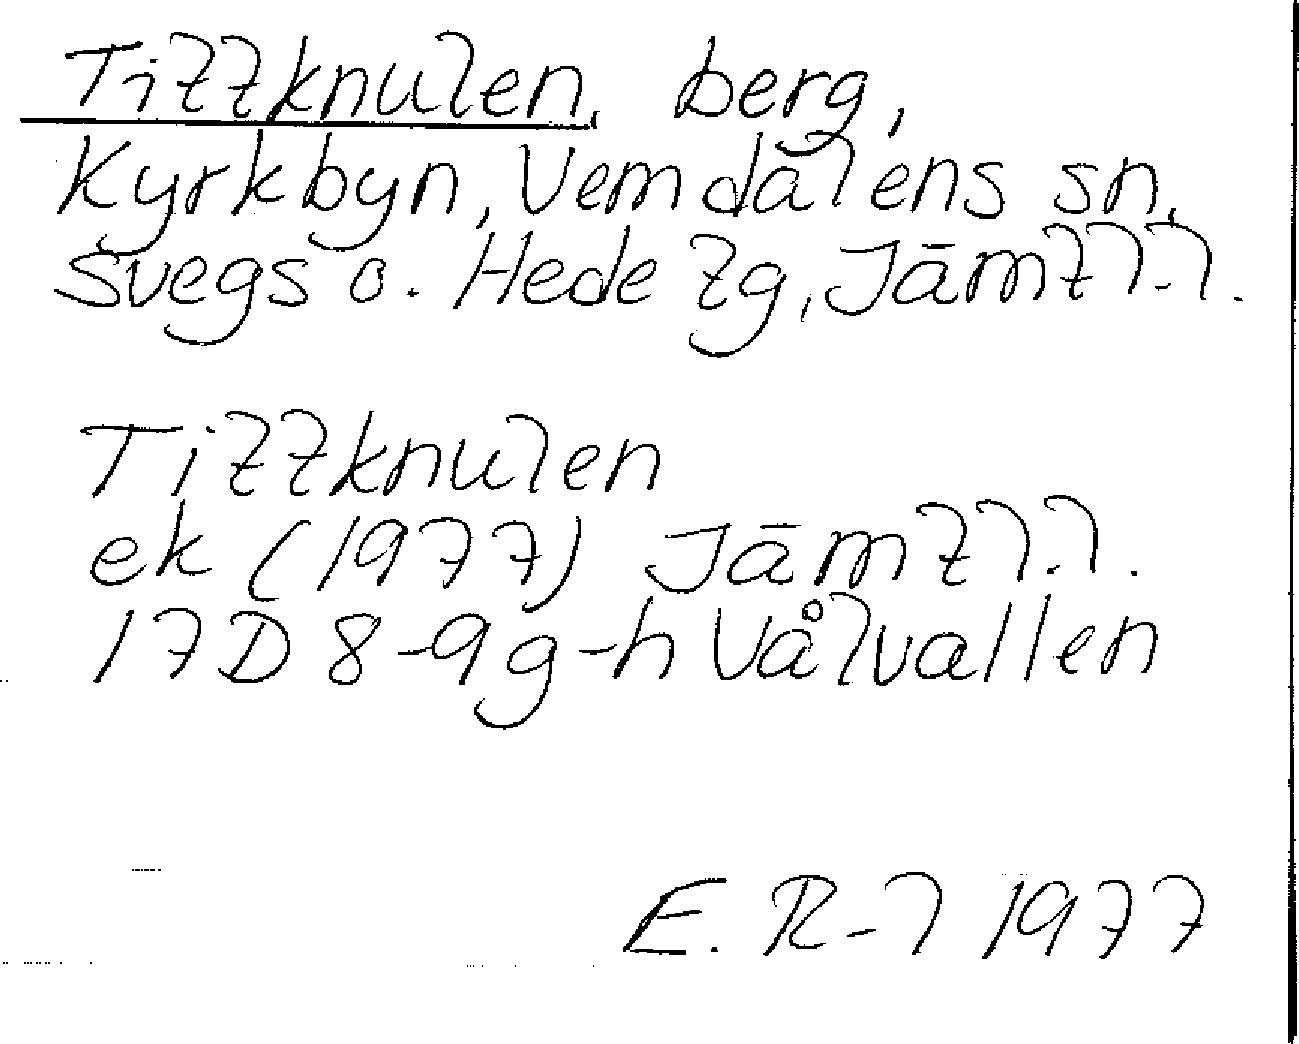 Tittknulen, berg,
Kyrkbyn, Vemdalens sn,
Svegs o. Hede tg, Jämtl.l.
Tittknulen
ek (1977) Jämtl.l.
17D 8-9 g-h Vålvallen
E. R-l 1977